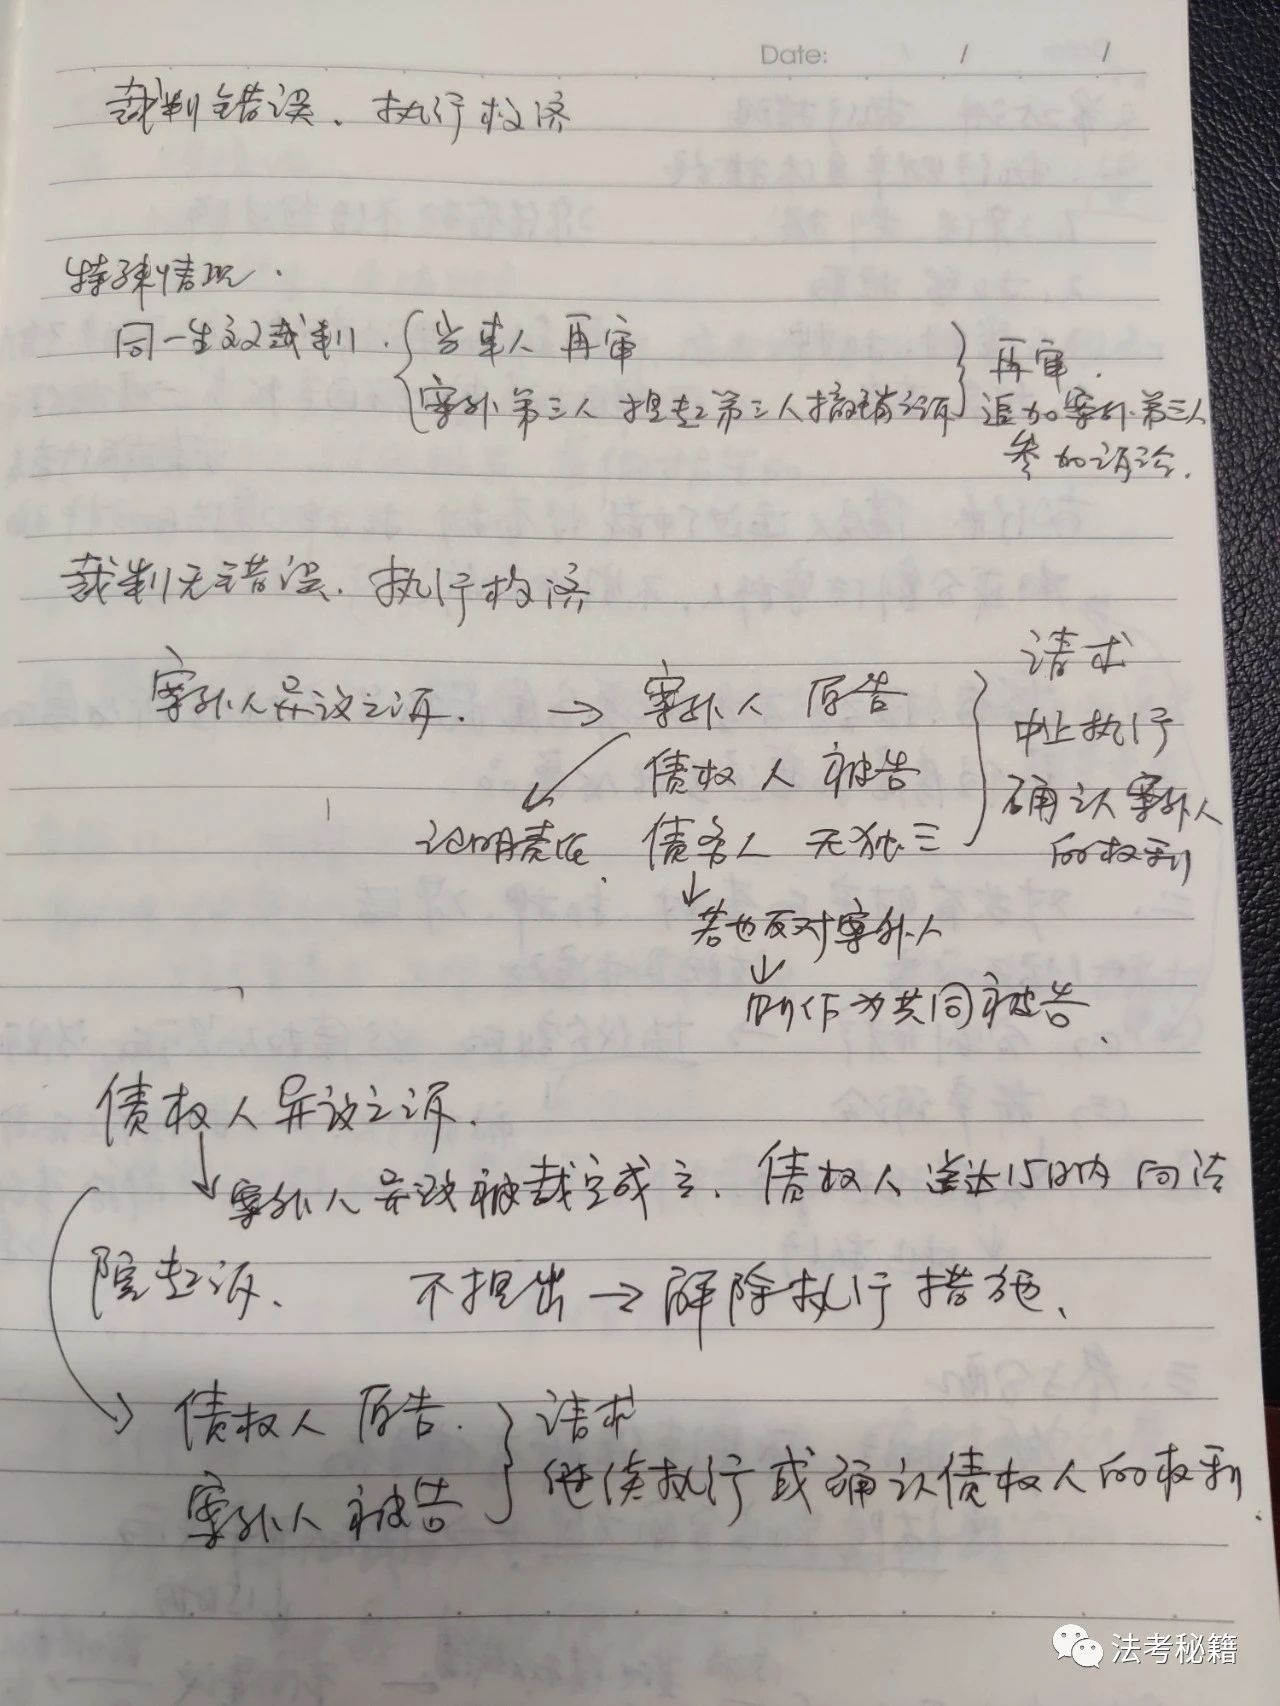 Date: / /
裁判错误、执行救济
特殊情况.
同一生效裁判. { 当事人 再审 } 再审.
案外第三人 提起第三人撤销之诉 追加案外第三人
参加诉讼.
裁判无错误、执行救济
案外人异议之诉. → 案外人 原告 } 请求
债权人 被告 中止执行
证明责任. 债务人 无独三 确认案外人
的权利
↓
若也反对案外人
↓
则作为共同被告.
债权人异议之诉.
↓ 案外人异议被裁定成立、债权人送达15日内向法
院起诉、 不提出 → 解除执行措施、
债权人 原告. } 请求
案外人 被告 继续执行或确认债权人的权利
法考秘籍